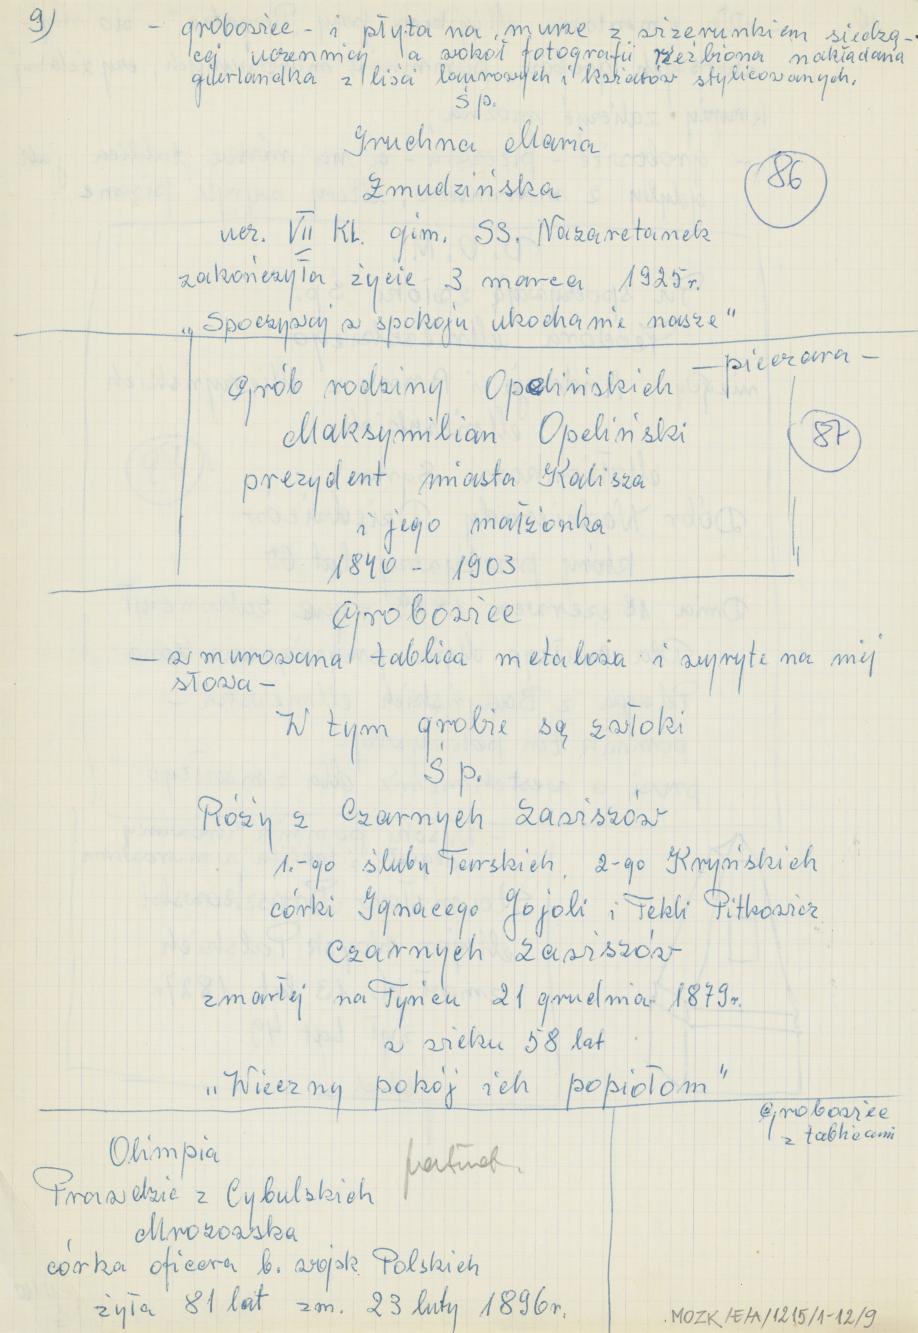 9)
- grobowiec - i płyta na murze z wizerunkiem siedzą-
cej uczennicy a wokoł fotografii rzeźbiona nakładana
guerlandka z liści laurowych i kwiatów stylizowanych.
Ś.p.
Gruchna Maria
Żmudzińska
86
ucz. VII Kl. gim. SS. Nazaretanek
zakończyła życie 3 marca 1925r.
„Spoczywaj w spokoju ukochanie nasze"
- pieczara -
Grób rodziny Opelińskich
Maksymilian Opeliński
87
prezydent miasta Kalisza
i jego małżonka
1840 - 1903
Grobowiec
- wmurowana tablica metalowa i wyryte na niej
słowa -
W tym grobie są zwłoki
Ś p.
Róży z Czarnych Zawiszów
1.-go ślubu Tarskich, 2-go Kryńskich
córki Ignacego Gojoli i Tekli Pitkowicz
Czarnych Zawiszów
zmarłej na Tyńcu 21 grudnia 1879r.
w wieku 58 lat
„Wieczny pokój ich popiołom"
Grobowiec
z tablicami
Olimpia
Prawdzic z Cybulskich
Mrozowska
córka oficera b. wojsk Polskich
żyła 81 lat zm. 23 luty 1896r.
MOZK/E/A/1215/1-12/9